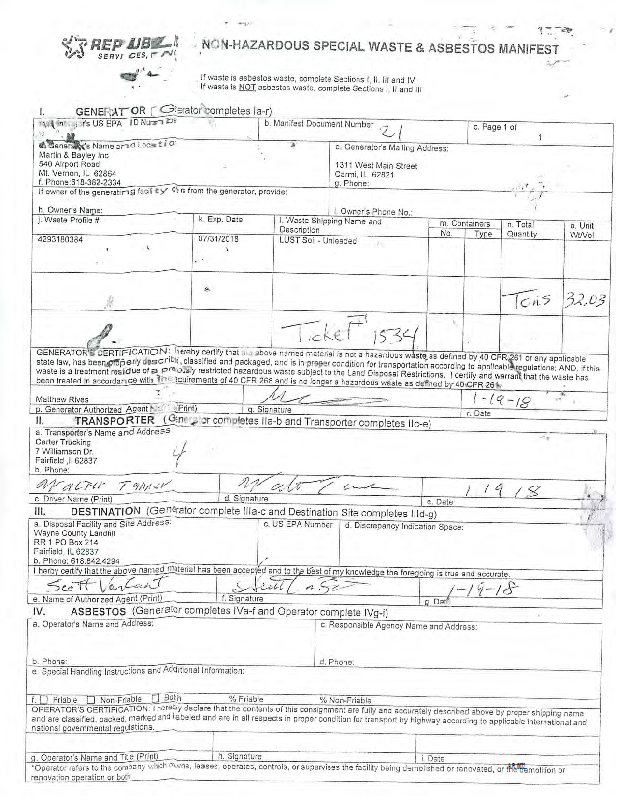 REPUBLIC
SERVICES, INC.
NON-HAZARDOUS SPECIAL WASTE & ASBESTOS MANIFEST
If waste is asbestos waste, complete Sections I, II, III and IV
If waste is NOT asbestos waste, complete Sections I, II and III
I. GENERATOR (Generator completes Ia-r)
a. Generator's US EPA ID Number
b. Manifest Document Number
21
c. Page 1 of
1
d. Generator's Name and Location
Martin & Bayley Inc
540 Airport Road
Mt. Vernon, IL 62864
f. Phone:618-382-2334
e. Generator's Mailing Address:
1311 West Main Street
Carmi, IL 62821
g. Phone:
If owner of the generating facility differs from the generator, provide:
h. Owner's Name:
i. Owner's Phone No.:
j. Waste Profile #
k. Exp. Date
l. Waste Shipping Name and Description
m. Containers
No. Type
n. Total Quantity
o. Unit Wt/Vol
4293180384
07/31/2018
LUST Soil - Unleaded
Tons
32.03
Ticket# 1534
GENERATOR'S CERTIFICATION: I hereby certify that the above named material is not a hazardous waste as defined by 40 CFR 261 or any applicable
state law, has been properly described, classified and packaged, and is in proper condition for transportation according to applicable regulations; AND, if this
waste is a treatment residue of a previously restricted hazardous waste subject to the Land Disposal Restrictions. I certify and warrant that the waste has
been treated in accordance with the requirements of 40 CFR 268 and is no longer a hazardous waste as defined by 40 CFR 261.
Matthew Rives
1-19-18
p. Generator Authorized Agent Name (Print)
q. Signature
r. Date
II. TRANSPORTER (Generator completes IIa-b and Transporter completes IIc-e)
a. Transporter's Name and Address
Carter Trucking
7 Williamson Dr.
Fairfield ,Il 62837
b. Phone:
4
1 19 18
c. Driver Name (Print)
d. Signature
e. Date
III. DESTINATION (Generator complete IIIa-c and Destination Site completes IIId-g)
a. Disposal Facility and Site Address:
Wayne County Landfill
RR 1 PO Box 214
Fairfield, IL 62837
b. Phone: 618.842.4294
c. US EPA Number
d. Discrepancy Indication Space:
I hereby certify that the above named material has been accepted and to the best of my knowledge the foregoing is true and accurate.
Scott
1-19-18
e. Name of Authorized Agent (Print)
f. Signature
g. Date
IV. ASBESTOS (Generator completes IVa-f and Operator complete IVg-i)
a. Operator's Name and Address:
c. Responsible Agency Name and Address:
b. Phone:
d. Phone:
e. Special Handling Instructions and Additional Information:
f. Friable Non-Friable Both % Friable % Non-Friable
OPERATOR'S CERTIFICATION: I hereby declare that the contents of this consignment are fully and accurately described above by proper shipping name
and are classified, packed, marked and labeled and are in all respects in proper condition for transport by highway according to applicable international and
national governmental regulations.
g. Operator's Name and Title (Print)
h. Signature
i. Date
*Operator refers to the company which owns, leases, operates, controls, or supervises the facility being demolished or renovated, or the demolition or
renovation operation or both